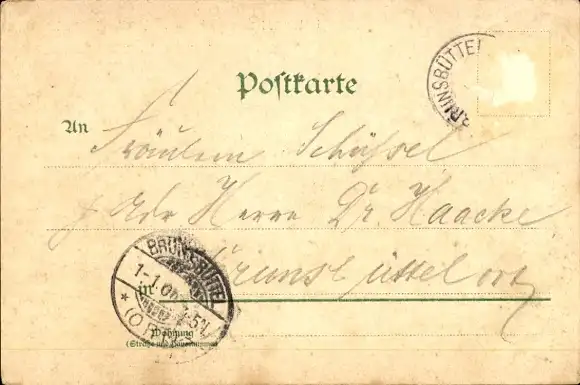 Postkarte
BRUNSBÜTTEL
An
Fräulein Schüssel
Adr Herrn Dr. Haacke
Brunsbüttelort
BRUNSBÜTTEL
1-1
in
(ORT)
Wohnung
(Straße und Hausnummer)